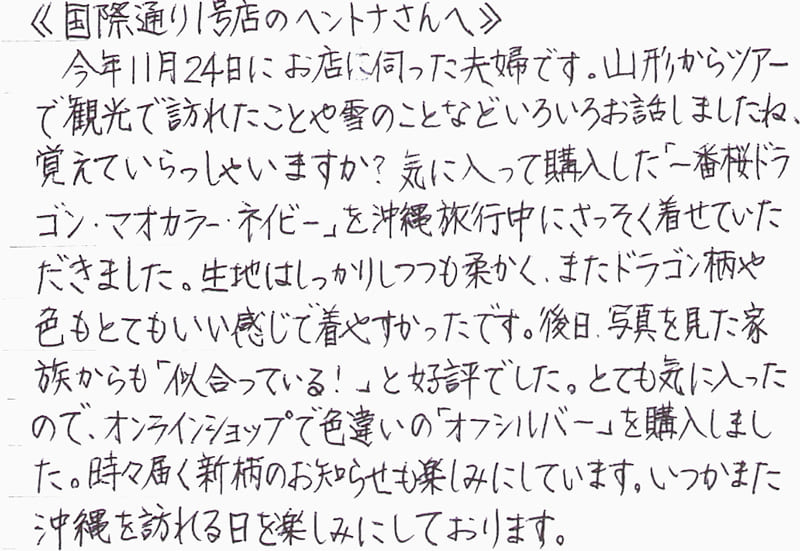 《国際通り1号店のヘントナさんへ》
今年11月24日にお店に伺った夫婦です。山形からツアー
で観光で訪れたことや雪のことなどいろいろお話しましたね、
覚えていらっしゃいますか?気に入って購入した「一番桜ドラ
ゴン・マオカラー・ネイビー」を沖縄旅行中にさっそく着せていた
だきました。生地はしっかりしつつも柔かく、またドラゴン柄や
色もとてもいい感じで着やすかったです。後日、写真を見た家
族からも「似合っている!」と好評でした。とても気に入った
ので、オンラインショップで色違いの「オフシルバー」を購入しまし
た。時々届く新柄のお知らせも楽しみにしています。いつかまた
沖縄を訪れる日を楽しみにしております。